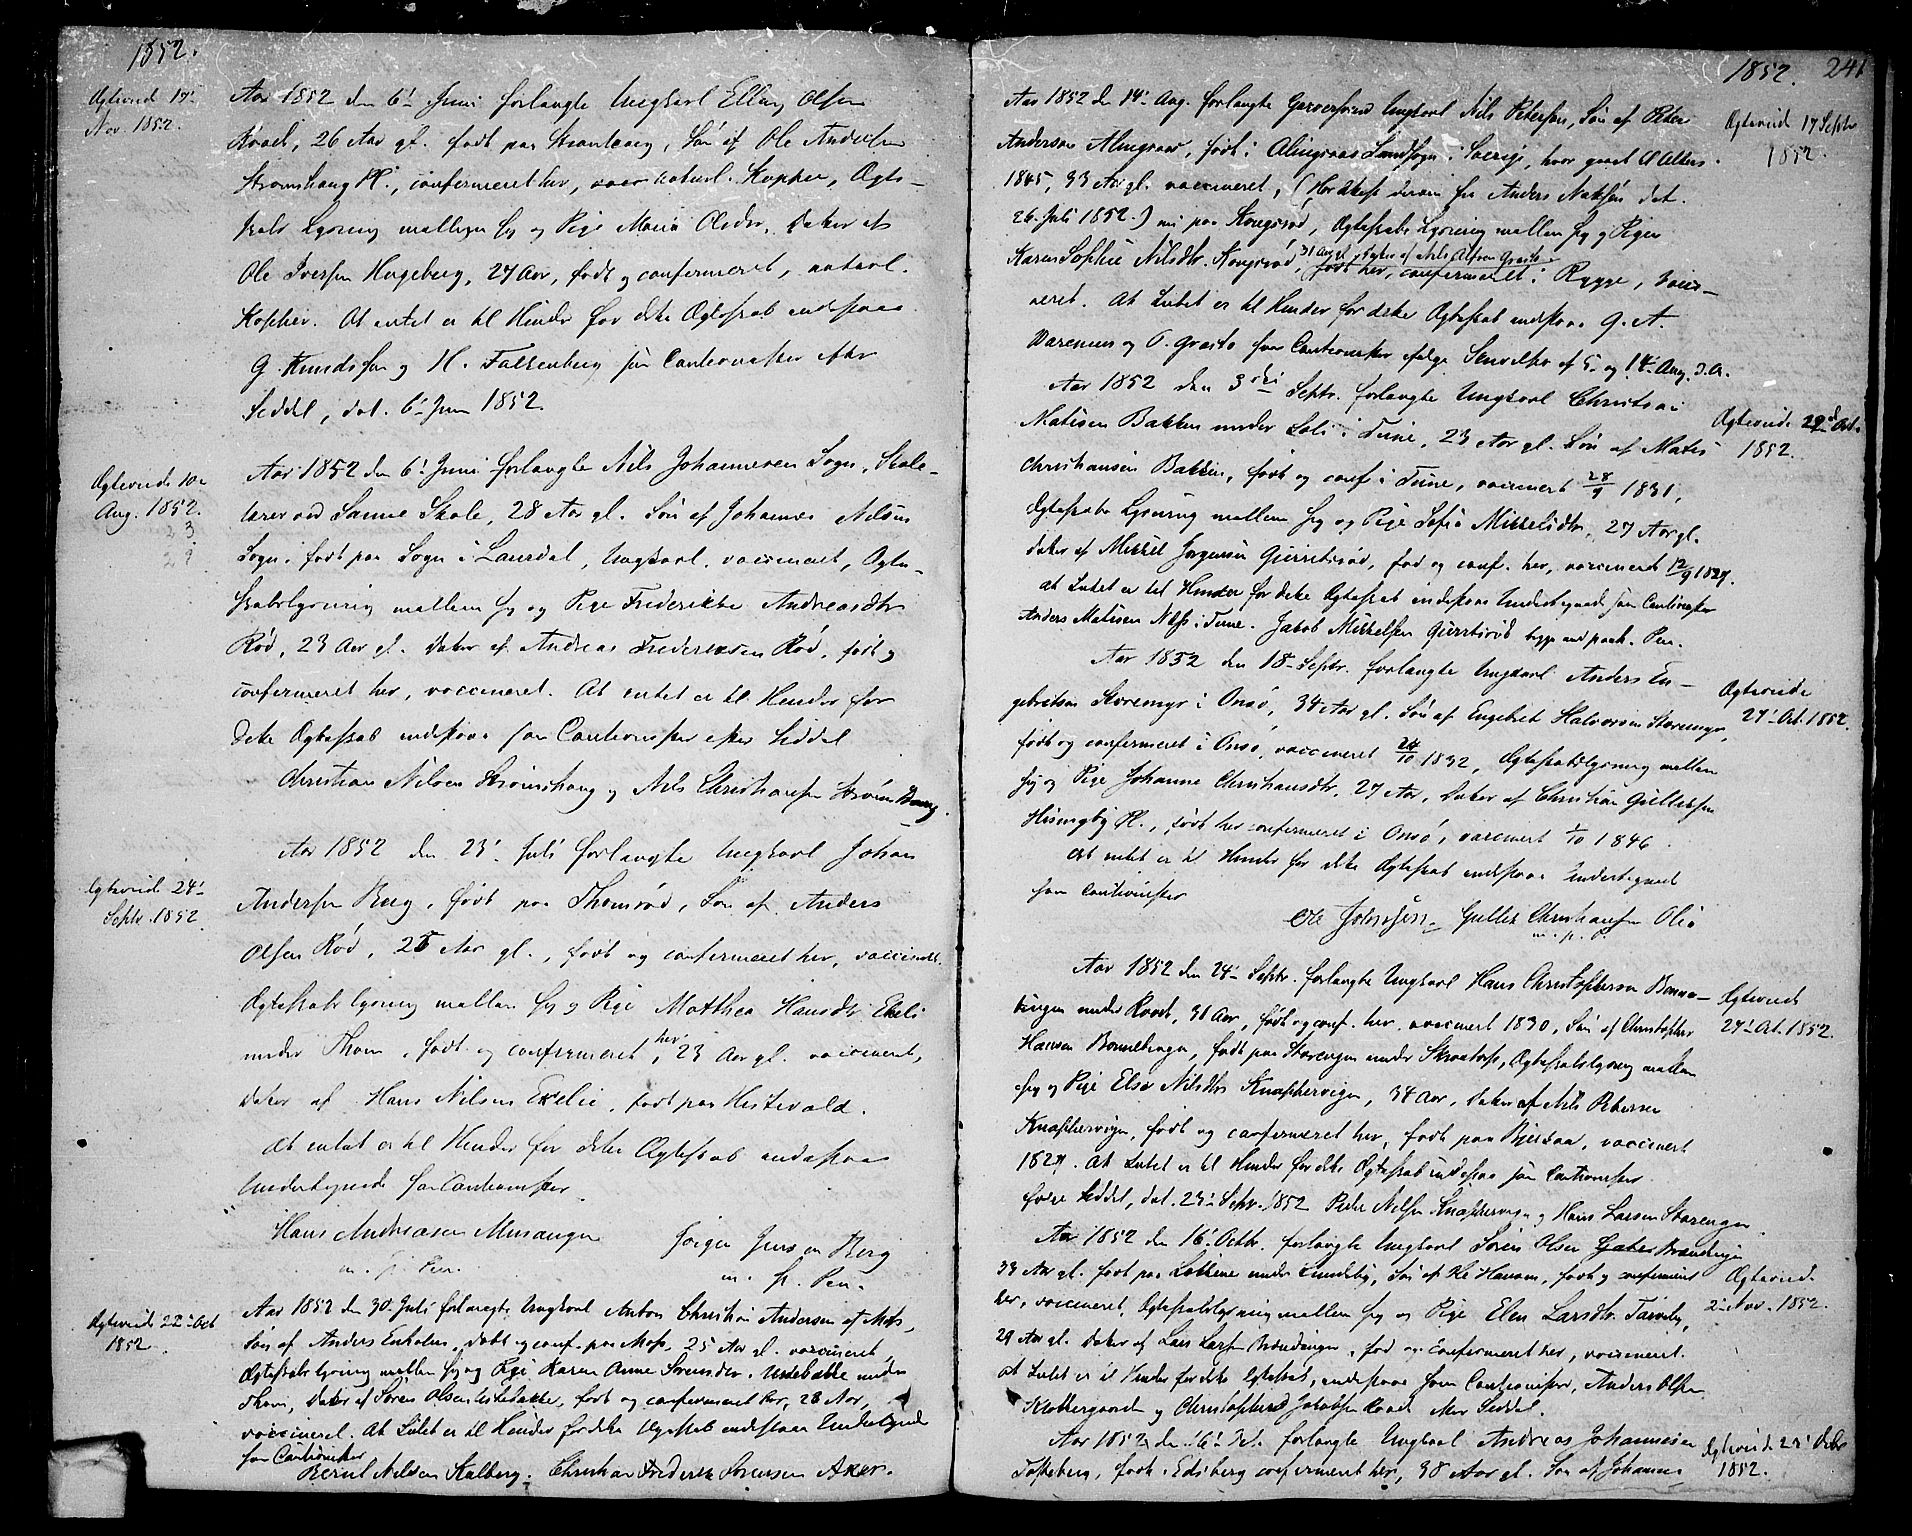 1852.
Ægteviede 17'
Nov. 1852.
Aar 1852 den 6' Juni forlangte Ungkarl Elling Olsen
26 Aar gl. født paa Søn af Ole Andersen
Pl., confirmeret her, naturl. Kopper, Ægte-
skabs Lysning mellem sig og Pige Maria Olsdr. Datter af
Ole Iversen Hugeberg, 27 Aar, født og confirmeret, naturl.
Kopper. At intet er til Hinder for dette Ægteskab indestaae
G. Knudsen og H. Falkenberg som Cautionister efter
Seddel, dat. 6' Juni 1852.
Ægteviede 10de
Aug. 1852.
Aar 1852 den 6' Juni forlangte Nils Johannesen Sogn, Skole-
lærer ved Sanne Skole, 28 Aar gl. Søn af Johannes Nilsen
Sogn, født paa Sogn i Laurdal, Ungkarl, vaccineret, Ægte-
skabslysning mellem sig og Pige Frederikke Andreasdtr
Rød, 23 Aar gl. Datter af Andreas Frederiksen Rød, født og
confirmeret her, vaccineret. At intet er til Hinder for
dette Ægteskab indestaae som Cautionister efter Seddel
Christian Nilsen Strømshaug og Nils Christiansen
Ægteviede 24'
Septr. 1852
Aar 1852 den 23' Juli forlangte Ungkarl Johan
Andersen født paa Thomrød, Søn af Anders
Olsen Rød, Aar gl., født og confirmeret her, vaccineret.
Ægteskabs lysning mellem sig og Pige Matthea Hansdtr. Ekeli
under Thom, født og confirmeret her, 23 Aar gl. vaccineret,
Datter af Hans Nilsen Ekelie, født paa Hestevold.
At intet er til Hinder for dette Ægteskab indestaae
Undertegnede som Cautionister.
Hans Andreasen
m. f. Pen.
Jørgen Jensen Berg
m. f. Pen.
Ægteviede 22de Oct
1852.
Aar 1852 den 30' Juli forlangte Ungkarl Anton Christian Andersen af Moss,
Søn af Anders Enholm, døbt og conf. paa Moss, 25 Aar gl. vaccineret,
Ægteskabs lysning mellem sig og Pige Karen Anne Sørensdtr. under
Thom, Datter af Søren Olsen født og confirmeret her, 28 Aar,
vaccineret. At Intet er til Hinder for dette Ægteskab indestaae Undertegnede
som Cautionister
Bernt Nilsen Kalberg. Christian Frederik Sørensen Aker.
1852. 241
Ægteviede 17 Septr
1852.
Aar 1852 den 14' Aug. forlangte Garversvend Ungkarl Nils Petersen, Søn af Peter
Anderson Alingsaas, født i Alingsaas Landsogn i Sverige, hvor gaaet til Alters
1845, 33 Aar gl. vaccineret, (Har Attest derom fra Anders dat.
26. Juli 1852.) nu paa Kongsrød, Ægteskabs Lysning mellem sig og Pigen
Karen Sophie Nilsdtr. Kongsrød, 31 Aar gl. Datter af Nils Olsen Grasto
født her, confirmeret i Rygge, vacci-
neret. At Intet er til Hinder for dette Ægteskab indestaae G. A.
og O. Grasto som Cautionister ifølge af 5' og 14' Aug. d. A.
Ægteviede 22d Oct.
1852.
Aar 1852 den 3die Septr. forlangte Ungkarl Christian
Matisen Bakken under Soli i Tune, 23 Aar gl. Søn af Matis
Christiansen Bakken, født og conf. i Tune, vaccineret 28/9 1831,
Ægteskabs Lysning mellem sig og Pige Sofia Mikkelsdtr, 27 Aar gl.
Datter af Mikkel Jørgensen født og conf. her, vaccineret 12/9 1827.
At Intet er til Hinder for dette Ægteskab indestaae Undertegnede som Cautionister
Anders Matisen i Tune. Jakob Mikkelsen begge med paah. Pen.
Ægteviede
27' Oct. 1852.
Aar 1852 den 18' Septr. forlangte Ungkarl Anders En-
gebretsen Storemyr i Onsø, 34 Aar gl. Søn af Engebret Halvorsen Storemyr,
født og confirmeret i Onsø, vaccineret 24/10 1832, Ægteskabslysning mellem
sig og Pige Johanne Christiansdtr. 27 Aar, Datter af Christian Gullichsen
Pl., født her confirmeret i Onsø, vaccineret 1/10 1846.
At intet er til Hinder for dette Ægteskab indestaae Undertegnede
som Cautionister
Ole Johnsen. Gullik Christiansen
m. p. P.
Ægteviede
27' Oct. 1852.
Aar 1852 den 24' Septr. forlangte Ungkarl Hans Christophersen Bonne-
under 31 Aar, født og conf. her, vaccineret 1830, Søn af Christopher
Hansen født paa Storengen under Ægteskabslysning mellem
sig og Pige Else Nilsdtr Knappervigen, 34 Aar, Datter af Nils Petersen
Knappervigen, født og confirmeret her, født paa vaccineret
1827. At Intet er til Hinder for dette Ægteskab indestaae som Cautionister
følge Seddel, dat. 23' Septr. 1852 Peder Nilsen Knappervigen og Hans Larsen Storengen
Ægteviede
2' Nov. 1852.
Aar 1852 den 16' Octbr. forlangte Ungkarl Søren Olsen
33 Aar gl. født paa Løkkene under Lundeby, Søn af Ole Hansen, født og confirmeret
her, vaccineret, Ægteskabslysning mellem sig og Pige Elen Larsdtr.
29 Aar gl. Datter af Lars Larsen født og confirmeret her, vaccineret.
At Intet er til Hinder for dette Ægteskab, indestaae som Cautionister, Anders Olsen
Klokkergaarden og Christopher Jakobsen efter Seddel.
Ægteviede 28' Octbr
1852.
Aar 1852 den 16' forlangte Ungkarl Andreas Johannesen
Tofteberg, født i Edsberg confirmeret her, 38 Aar gl. Søn af Johannes